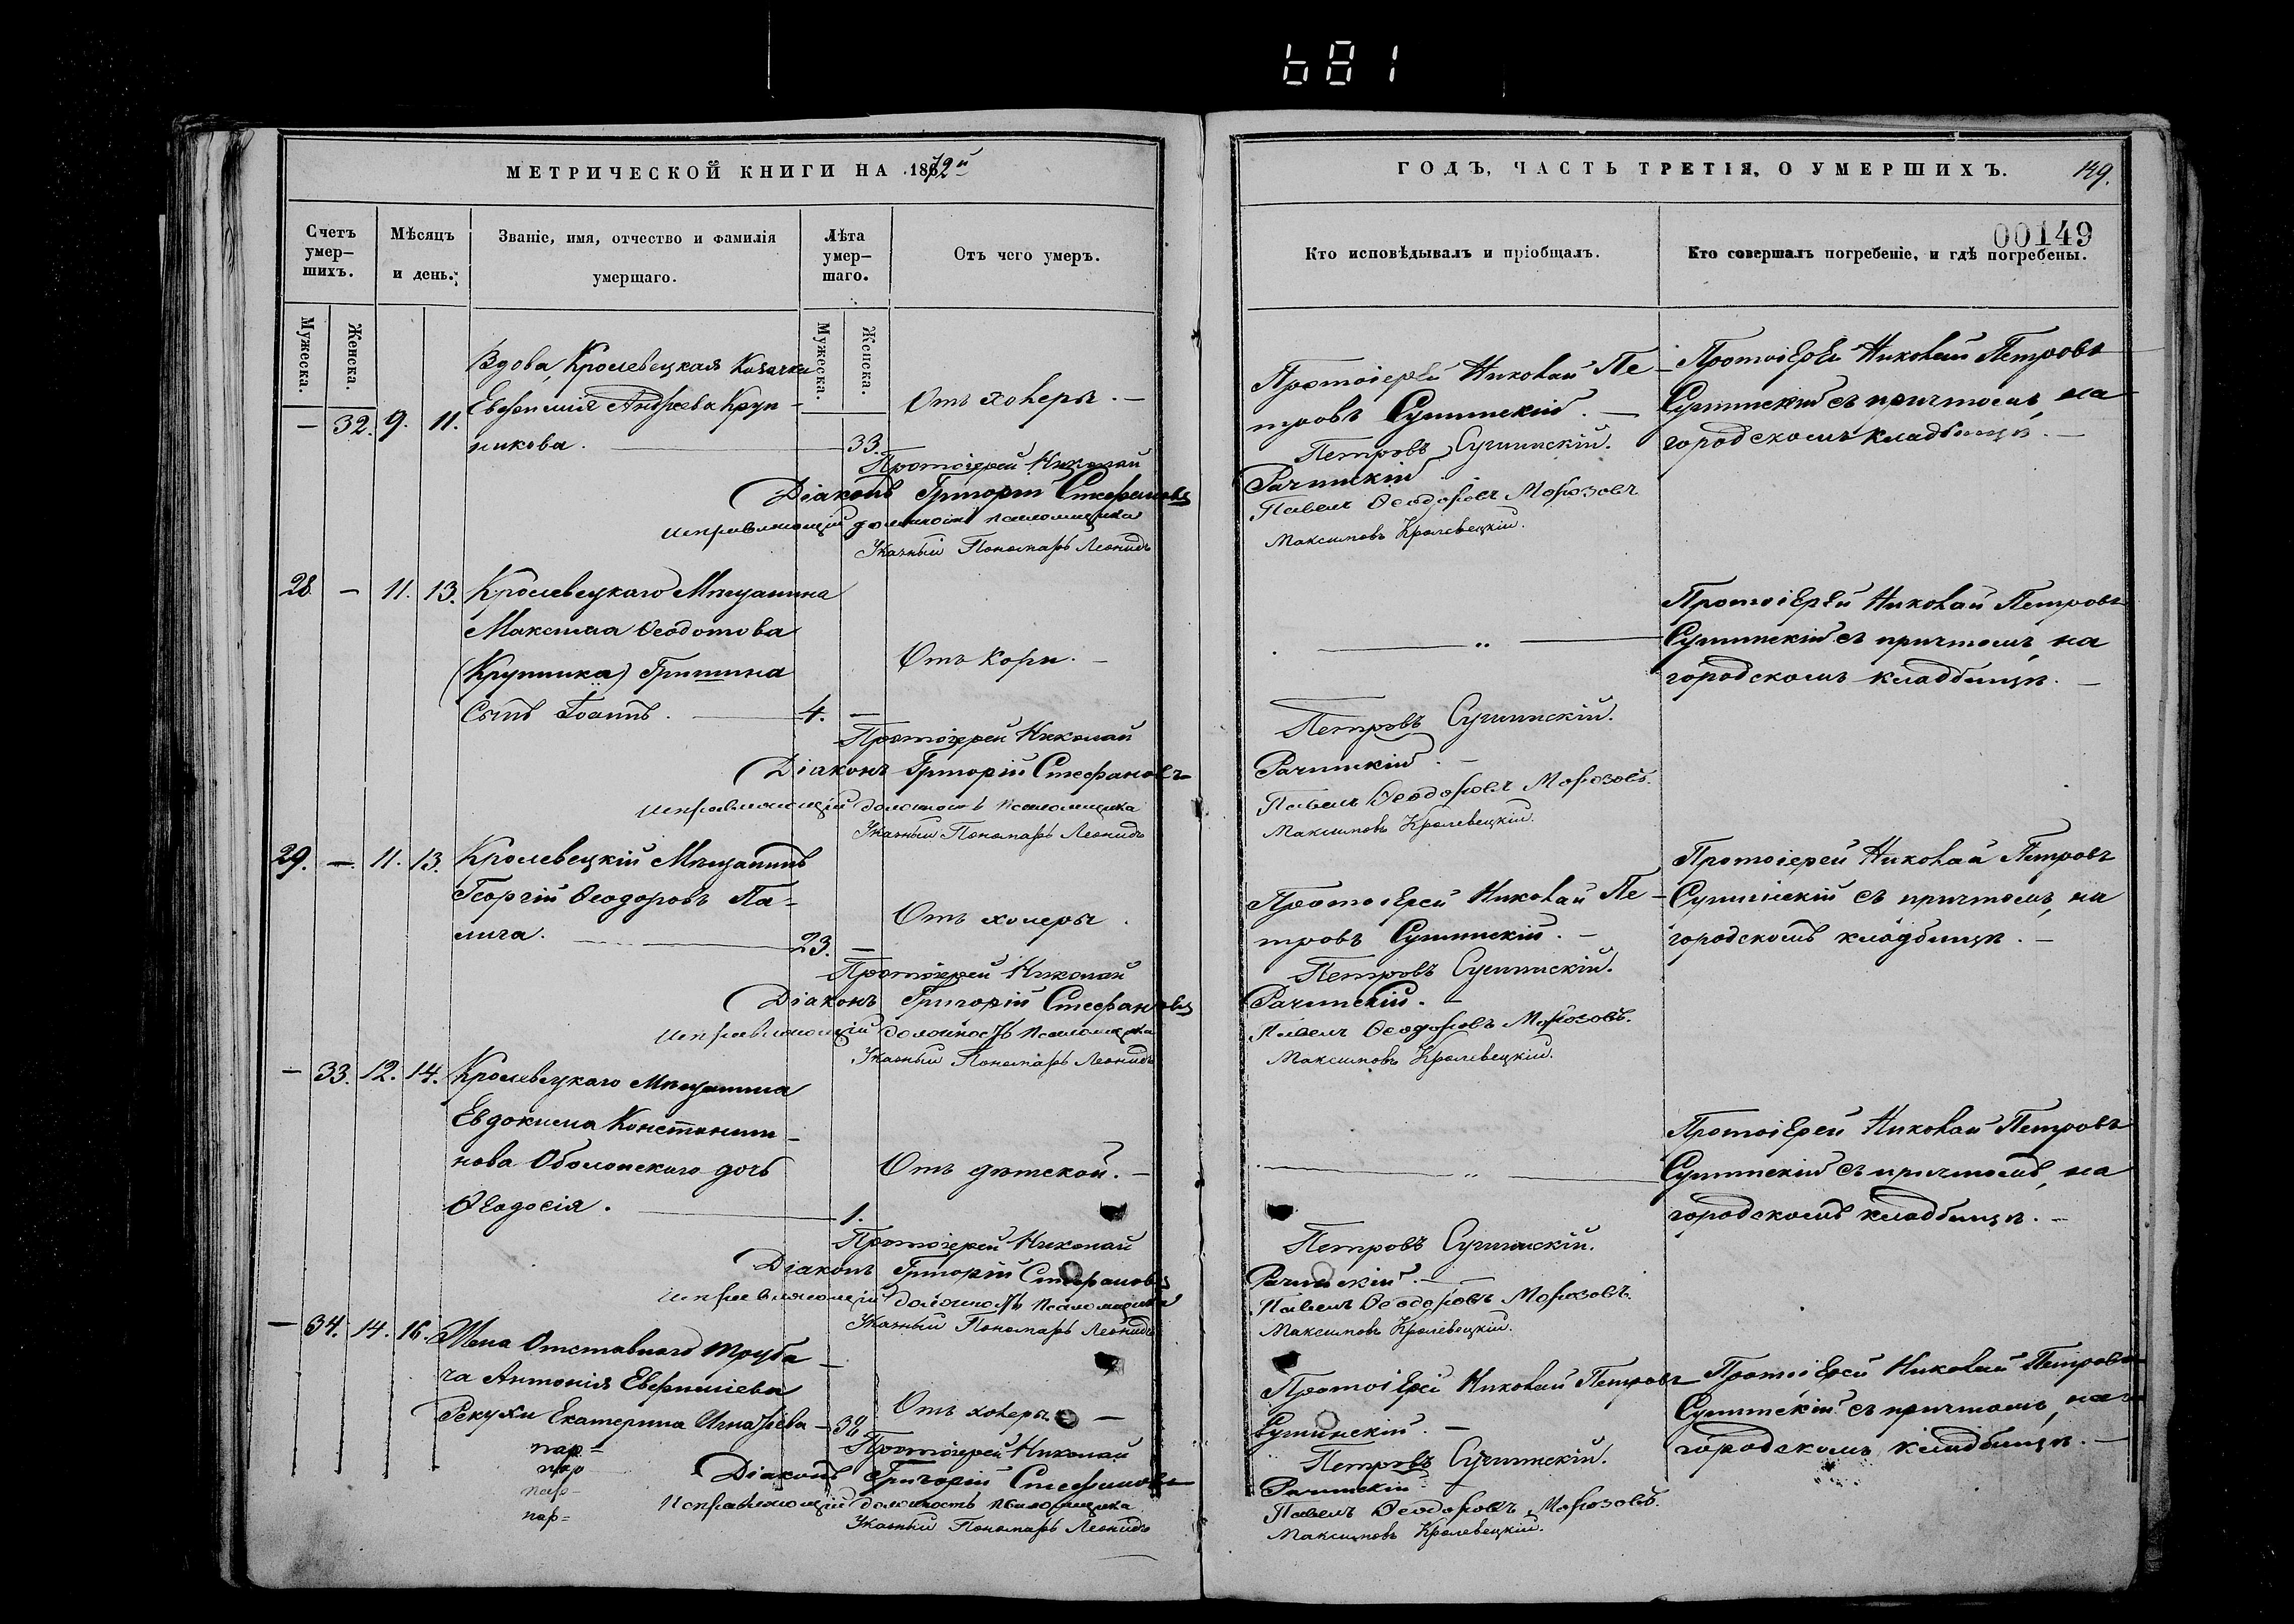 681
МЕТРИЧЕСКОЙ КНИГИ НА 1872й
Счетъ умер-
шихъ.
Мѣсяцъ
и день.
Званіе, имя, отчество и фамилія
умершаго.
Лѣта
умер-
шаго.
Отъ чего умеръ.
Мужеска.
Женска.
Мужеска.
Женска.
— 32. 9. 11.
Вдова, Кролевецкая Козачка
Евфимія Андреева Круп-
никова. 33.
Отъ холеры. —
Протоіерей Николай
Діаконъ Григорій Стефановъ
Исправляющій должность псаломщика
Указный Пономарь Леонидъ
28 — 11. 13.
Кролевецкаго Мѣщанина
Максима Ѳеодотова
(Крупника) Гришина
Сынъ Іоаннъ. 4. —
Отъ кори. —
Протоіерей Николай
Діаконъ Григорій Стефановъ
Исправляющій должность псаломщика
Указный Пономарь Леонидъ
29. — 11. 13.
Кролевецкій Мѣщанинъ
Георгій Ѳеодоровъ Па-
лига. 23. —
Отъ холеры.
Протоіерей Николай
Діаконъ Григорій Стефановъ
Исправляющій должность псаломщика
Указный Пономарь Леонидъ
— 33. 12. 14.
Кролевецкаго Мѣщанина
Евдокима Константи-
нова Оболонскаго дочь
Ѳеодосія. 1.
Отъ дѣтской. —
Протоіерей Николай
Діаконъ Григорій Стефановъ
Исправляющій должность псаломщика
Указный Пономарь Леонидъ
— 34. 14. 16.
Жена Отставнаго Труба-
ча Антонія Евфиміева
Рекухи Екатерина Игнатіева —
Отъ холеры —
Протоіерей Николай
Діаконъ Григорій Стефановъ
Исправляющій должность псаломщика
Указный Пономарь Леонидъ
ГОДЪ, ЧАСТЬ ТРЕТІЯ, О УМЕРШИХЪ.
149.
00149
Кто исповѣдывалъ и пріобщалъ.
Кто совершалъ погребеніе, и гдѣ погребены.
Протоіерей Николай Пе-
тровъ Сушинскій. —
Протоіерей Николай Петровъ
Сушинскій съ причтомъ, на
городскомъ кладбищѣ. —
Петровъ Сушинскій.
Рачинскій
Павелъ Ѳеодоровъ Морозовъ
Максимовъ Кролевецкій.
Протоіерей Николай Петровъ
Сушинскій съ причтомъ, на
городскомъ кладбищѣ. —
Петровъ Сушинскій.
Рачинскій. —
Павелъ Ѳеодоровъ Морозовъ.
Максимовъ Кролевецкій.
Протоіерей Николай Пе-
тровъ Сушинскій. —
Протоіерей Николай Петровъ
Сушинскій съ причтомъ, на
городскомъ кладбищѣ. —
Петровъ Сушинскій.
Рачинскій. —
Павелъ Ѳеодоровъ Морозовъ.
Максимовъ Кролевецкій.
Протоіерей Николай Петровъ
Сушинскій съ причтомъ, на
городскомъ кладбищѣ. —
Петровъ Сушинскій.
Рачинскій. —
Павелъ Ѳеодоровъ Морозовъ.
Максимовъ Кролевецкій.
Протоіерей Николай Петровъ
Сушинскій. —
Протоіерей Николай Петровъ
Сушинскій съ причтомъ, на
городскомъ кладбищѣ. —
Петровъ Сушинскій.
Рачинскій
Павелъ Ѳеодоровъ Морозовъ.
Максимовъ Кролевецкій.